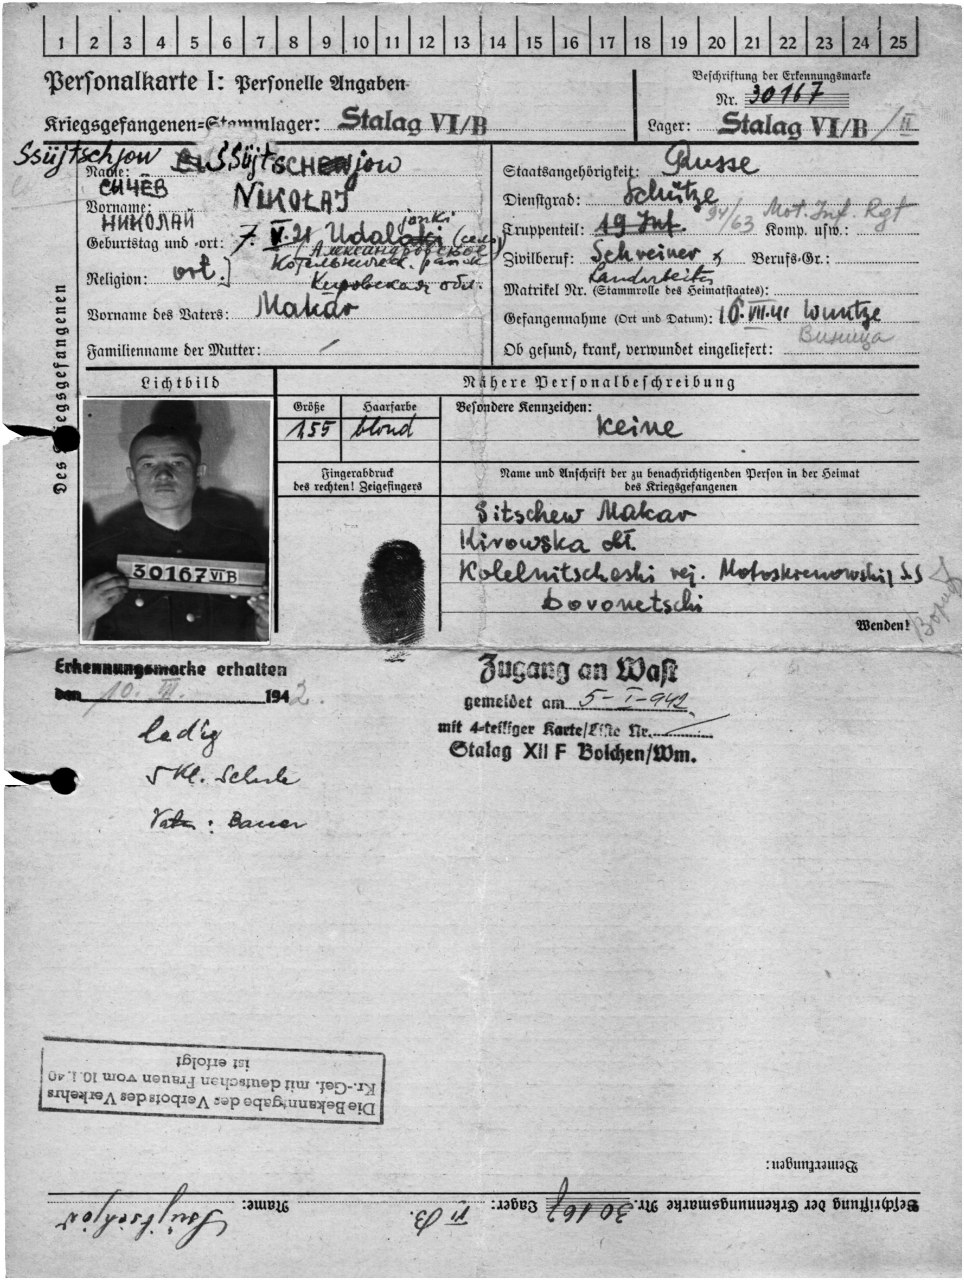 1 2 3 4 5 6 7 8 9 10 11 12 13 14 15 16 17 18 19 20 21 22 23 24 25
Personalkarte I: Personelle Angaben
Beschriftung der Erkennungsmarke
Nr. 30167
Kriegsgefangenen=Stammlager: Stalag VI/B
Lager: Stalag VI/B /II
Des Kriegsgefangenen
Ssüjtschjow
Name: Ssüjtschenjow
СЫЧЁВ
Vorname: NIKOŁAJ
НИКОЛАЙ
Geburtstag und =ort: 7. V. 21 Udalo janki (село)
Александровское
Котельническ. район
Religion: ort.
Кировская обл.
Vorname des Vaters: Makar
Familienname der Mutter: /
Staatsangehörigkeit: Russe
Dienstgrad: Schütze
Truppenteil: 19 Inf. 94/63 Mot. Inf. Rgt Komp. usw.:
Zivilberuf: Schreiner x Berufs=Gr.:
Landarbeiter
Matrikel Nr. (Stammrolle des Heimatstaates):
Gefangennahme (Ort und Datum): 16. VII. 41 Wuntze
Виница
Ob gesund, krank, verwundet eingeliefert:
Lichtbild
Nähere Personalbeschreibung
Größe
1,55
Haarfarbe
blond
Besondere Kennzeichen:
keine
Fingerabdruck
des rechten! Zeigefingers
Name und Anschrift der zu benachrichtigenden Person in der Heimat
des Kriegsgefangenen
Sitschew Makar
Kirowska obl.
Kolelnitscheski rej. Motoskrenowskij S.S
Dovonetschi
Wenden!
30167 VI B
Erkennungsmarke erhalten
den 10. III. 1942.
ledig
5 Kl. Schule
Vater: Bauer
Zugang an Wast
gemeldet am 5-I-942
mit 4-teiliger Karte/Liste Nr.
Stalag XII F Bolchen/Wm.
Die Bekanntgabe des Verbots des Verkehrs
Kr.-Gef. mit deutschen Frauen vom 10.1.40
ist erfolgt
Bemerkungen:
Beschriftung der Erkennungsmarke Nr. 30167 Lager: VI B. Name: Ssüjtschjow